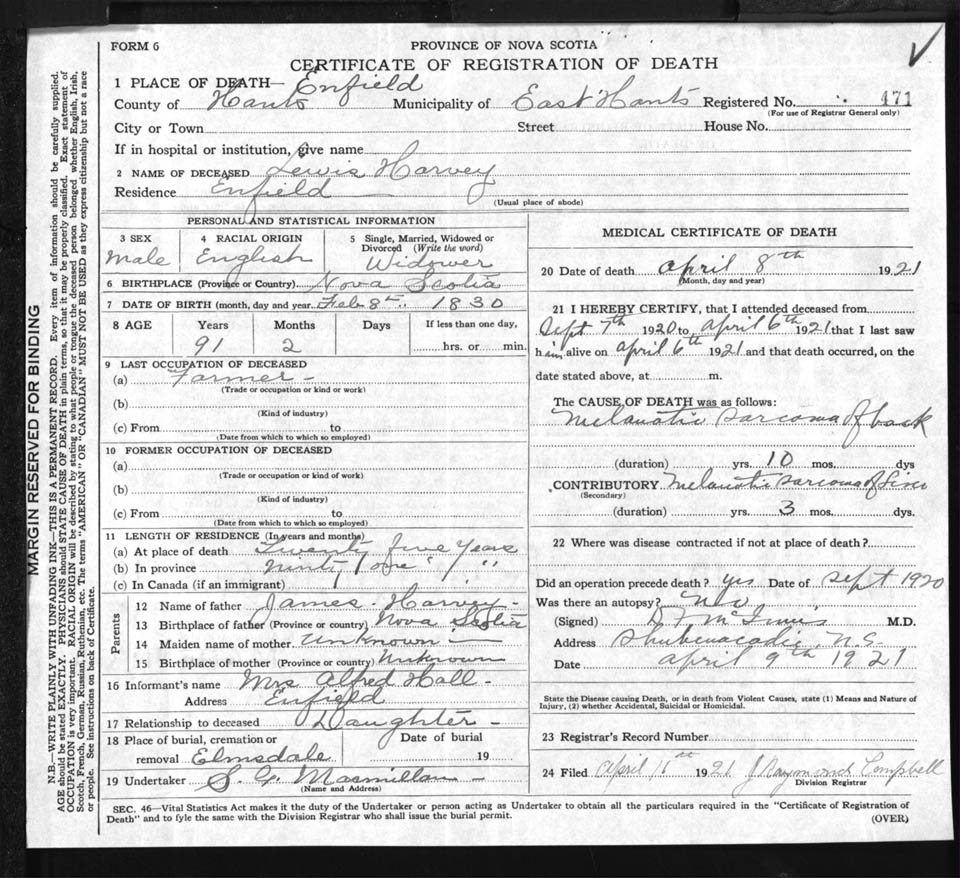 FORM 6
PROVINCE OF NOVA SCOTIA
CERTIFICATE OF REGISTRATION OF DEATH
1 PLACE OF DEATH— Enfield
County of Hants Municipality of East Hants Registered No. 471
(For use of Registrar General only)
City or Town Street House No.
If in hospital or institution, give name
2 NAME OF DECEASED Lewis Harvey
Residence Enfield
(Usual place of abode)
PERSONAL AND STATISTICAL INFORMATION
3 SEX 4 RACIAL ORIGIN 5 Single, Married, Widowed or
Divorced (Write the word)
Male English Widower
6 BIRTHPLACE (Province or Country) Nova Scotia
7 DATE OF BIRTH (month, day and year) Feb 8th 1830
8 AGE Years Months Days If less than one day,
91 2 hrs. or min.
9 LAST OCCUPATION OF DECEASED
(a) Farmer —
(Trade or occupation or kind or work)
(b)
(Kind of industry)
(c) From to
(Date from which to which so employed)
10 FORMER OCCUPATION OF DECEASED
(a)
(Trade or occupation or kind of work)
(b)
(Kind of industry)
(c) From to
(Date from which to which so employed)
11 LENGTH OF RESIDENCE (In years and months)
(a) At place of death Twenty five Years
(b) In province Ninty one " "
(c) In Canada (if an immigrant)
Parents
12 Name of father James Harvey -
13 Birthplace of father (Province or country) Nova Scotia
14 Maiden name of mother Unknown —
15 Birthplace of mother (Province or country) Unknown
16 Informant's name Mrs Alfred Hall -
Address Enfield
17 Relationship to deceased Daughter -
18 Place of burial, cremation or Date of burial
removal Elmsdale 19
19 Undertaker S. G. Macmillan -
(Name and Address)
MEDICAL CERTIFICATE OF DEATH
20 Date of death April 8th 1921
(Month, day and year)
21 I HEREBY CERTIFY, that I attended deceased from
Sept 7th 1920 to April 6th 1921 that I last saw
him alive on April 6th 1921 and that death occurred, on the
date stated above, at m.
The CAUSE OF DEATH was as follows:
Melanotic sarcoma of back
(duration) yrs. 10 mos. dys
CONTRIBUTORY Melanotic sarcoma of liver
(Secondary)
(duration) yrs. 3 mos. dys.
22 Where was disease contracted if not at place of death?
Did an operation precede death? yes Date of Sept 1920
Was there an autopsy? No
(Signed) D F McInnis M.D.
Address Shubenacadie, N.S.
Date April 9th 1921
State the Disease causing Death, or in death from Violent Causes, state (1) Means and Nature of
Injury, (2) whether Accidental, Suicidal or Homicidal.
23 Registrar's Record Number
24 Filed April 1921 J Raymond Campbell
Division Registrar
SEC. 46—Vital Statistics Act makes it the duty of the Undertaker or person acting as Undertaker to obtain all the particulars required in the "Certificate of Registration of
Death" and to fyle the same with the Division Registrar who shall issue the burial permit.
(OVER)
MARGIN RESERVED FOR BINDING
N.B.—WRITE PLAINLY WITH UNFADING INK—THIS IS A PERMANENT RECORD. Every item of information should be carefully supplied.
AGE should be stated EXACTLY. PHYSICIANS should STATE CAUSE OF DEATH in plain terms, so that it may be properly classified. Exact statement of
OCCUPATION is very important. RACIAL ORIGIN will be described by stating to what people or tongue the deceased person belonged whether English, Irish,
Scotch, French, German, Russian, Ruthenian, etc. The terms "AMERICAN" OR "CANADIAN" MUST NOT BE USED as they express citizenship but not a race
or people. See instructions on back of Certificate.